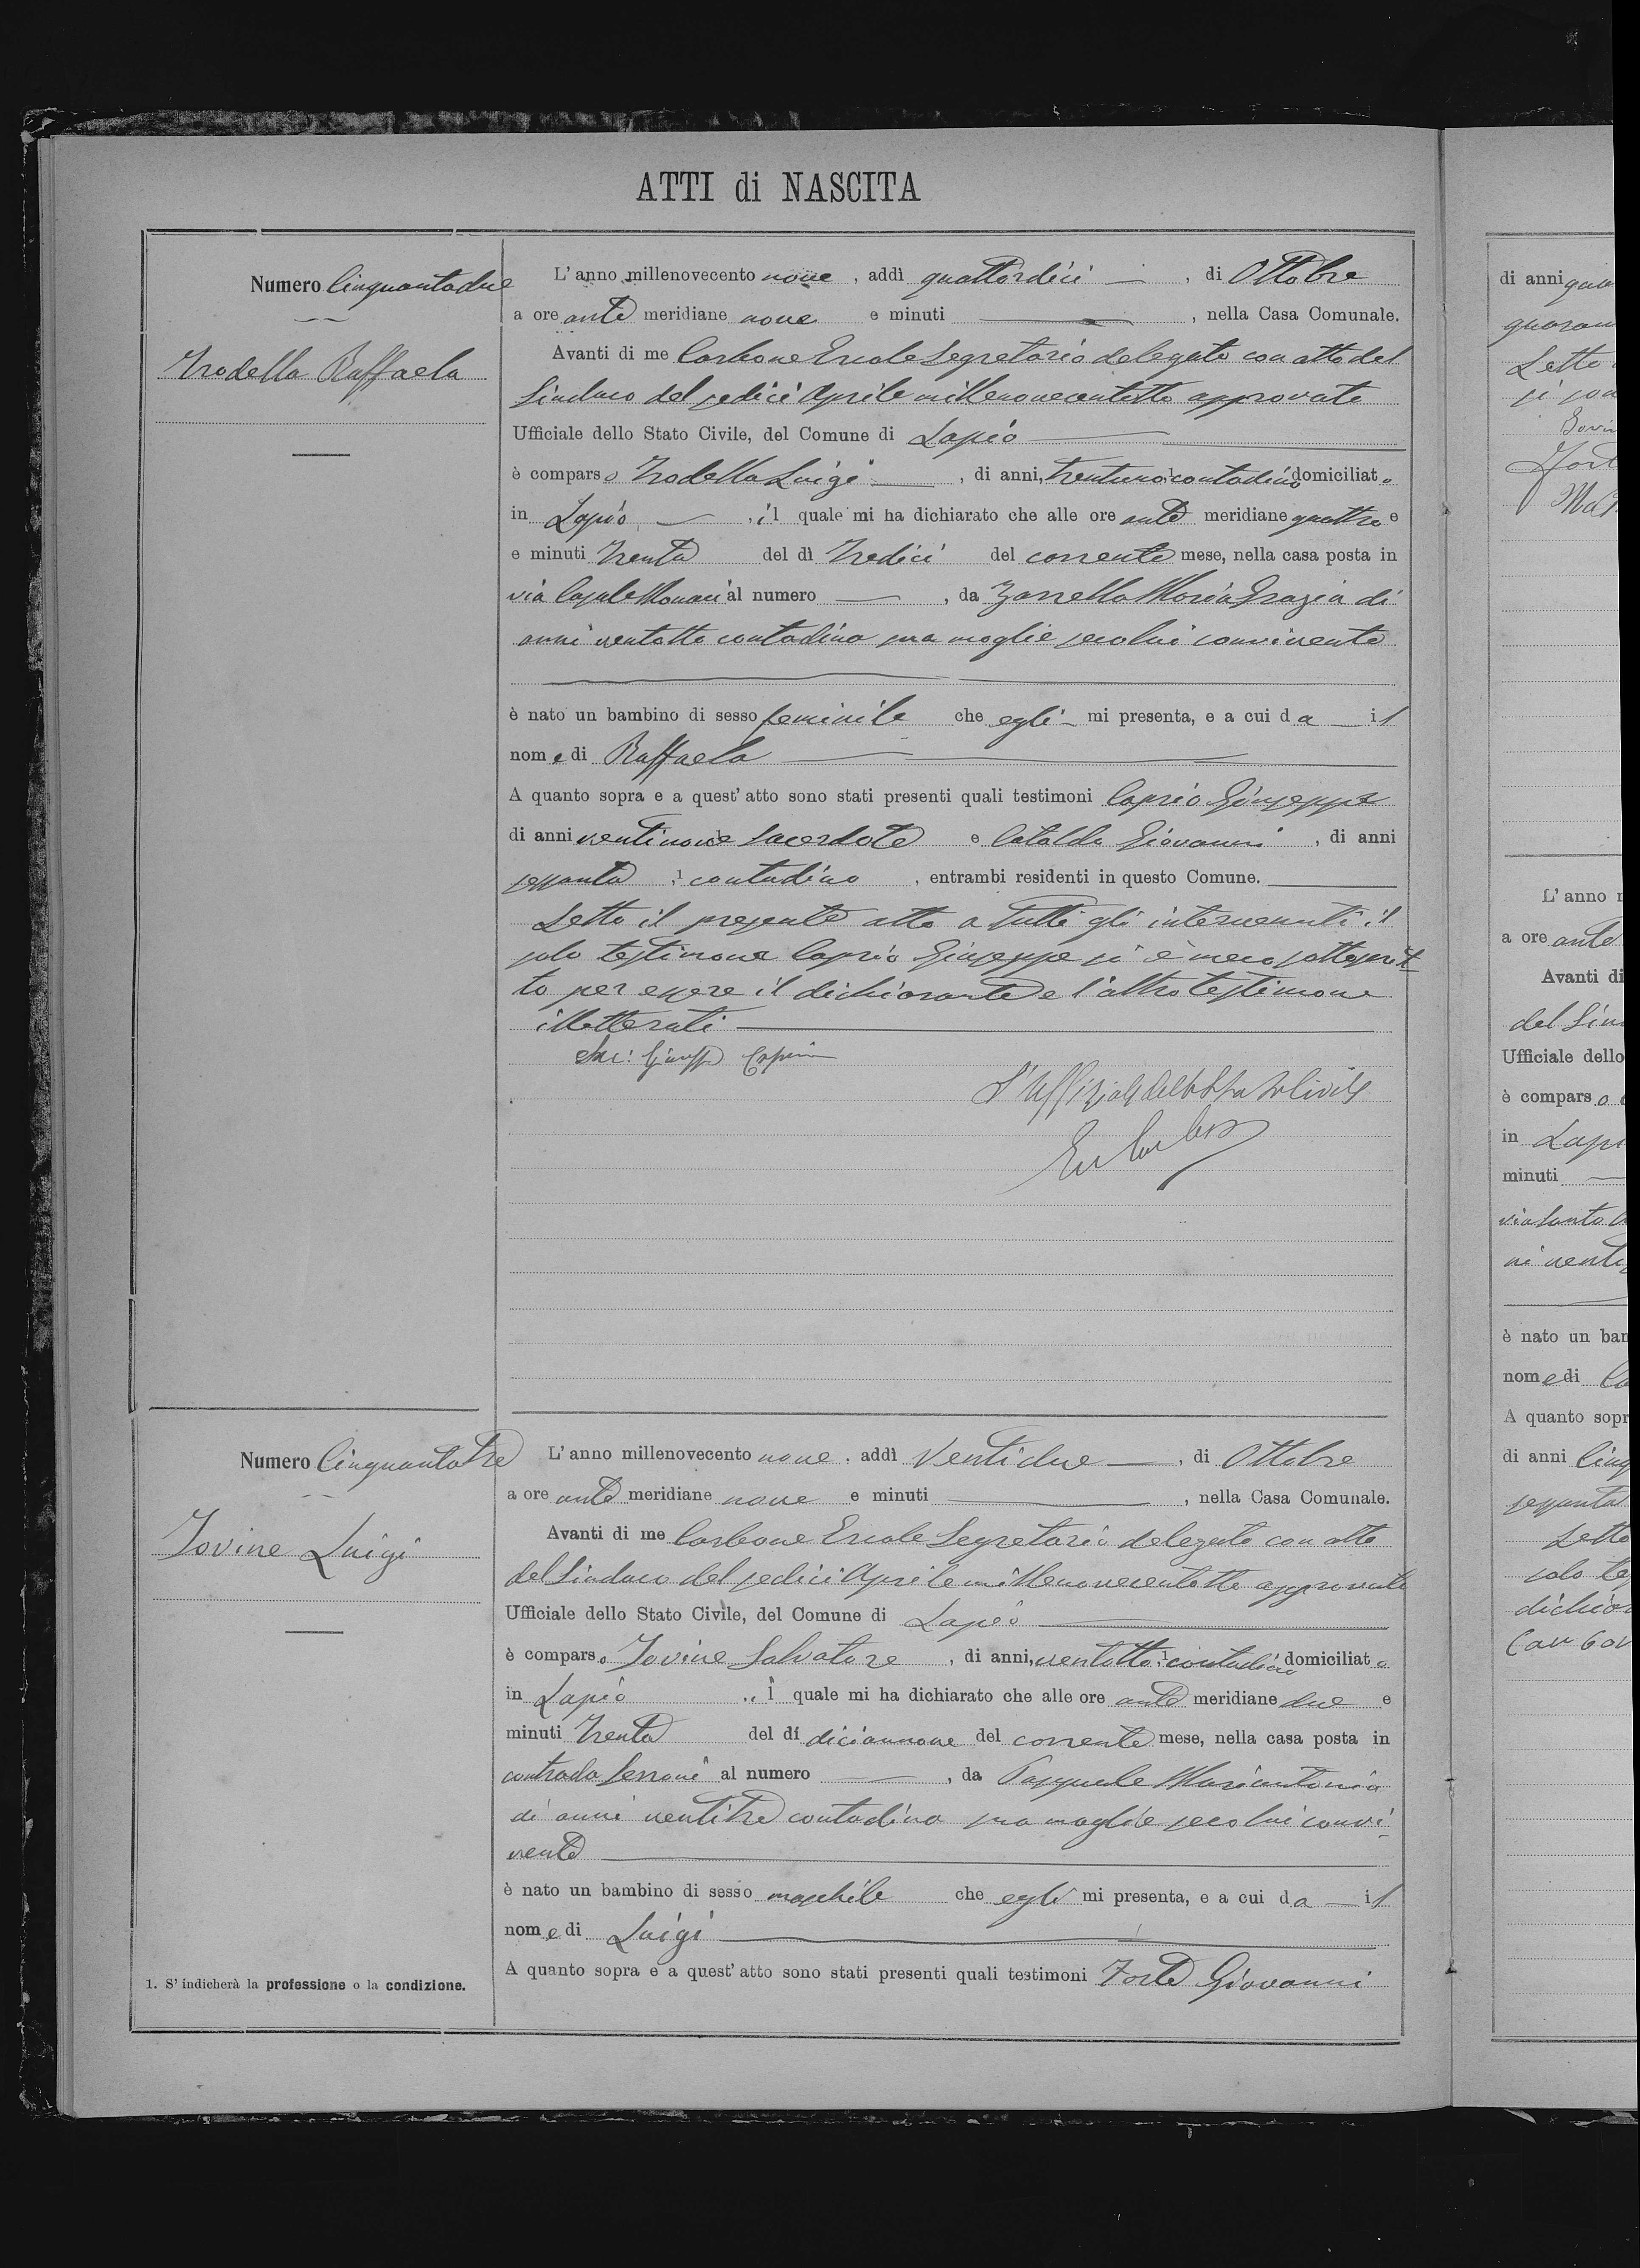 ATTI di NASCITA
Numero Cinquantadue
Trodella Raffaela
L'anno millenovecento nove, addì quattordici, di Ottobre
a ore ante meridiane nove e minuti, nella Casa Comunale.
Avanti di me Carbone Ercole Segretario delegato con atto del
Sindaco del sedici Aprile millenovecentotto approvato
Ufficiale dello Stato Civile, del Comune di Lapio
è comparso Trodella Luigi, di anni, trentuno, contadino domiciliato
in Lapio, il quale mi ha dichiarato che alle ore ante meridiane quattro e
e minuti trenta del dì tredici del corrente mese, nella casa posta in
via Casale Monaci al numero, da Zarrella Maria Grazia di
anni ventotto contadina sua moglie secolui convivente
è nato un bambino di sesso feminile che egli mi presenta, e a cui da il
nome di Raffaela
A quanto sopra e a quest'atto sono stati presenti quali testimoni Caprio Giuseppe
di anni ventinove sacerdote e Cataldo Giovanni, di anni
sessanta, contadino, entrambi residenti in questo Comune.
Letto il presente atto a tutti gli intervenuti il
solo testimone Caprio Giuseppe si è meco sottoscrit
to per essere il dichiarante e l'altro testimone
illetterati
Sac: Giuseppe Caprio
L'Uffiziale dello Stato Civile
Numero Cinquantatre
Iovine Luigi
L'anno millenovecento nove, addì Ventidue, di Ottobre
a ore ante meridiane nove e minuti, nella Casa Comunale.
Avanti di me Carbone Ercole Segretario delegato con atto
del Sindaco del sedici Aprile millenovecentotto approvato
Ufficiale dello Stato Civile, del Comune di Lapio
è comparso Iovine Salvatore, di anni, ventotto, contadino domiciliato
in Lapio, il quale mi ha dichiarato che alle ore ante meridiane due e
minuti trenta del dì diciannove del corrente mese, nella casa posta in
contrada Serroni al numero, da Pasquale Mariantonia
di anni ventitre contadina sua moglie secolui convi
vente
è nato un bambino di sesso maschile che egli mi presenta, e a cui da il
nome di Luigi
A quanto sopra e a quest'atto sono stati presenti quali testimoni Forte Giovanni
1. S'indicherà la professione o la condizione.
di anni
Letto
L'anno
a ore ante
Avanti di
del Sin
Ufficiale dello
è comparso
in Lapi
minuti
via Santo
ni venti
è nato un bam
nome di
A quanto sopr
di anni cinq
sessanta
Letto
solo te
dichiar